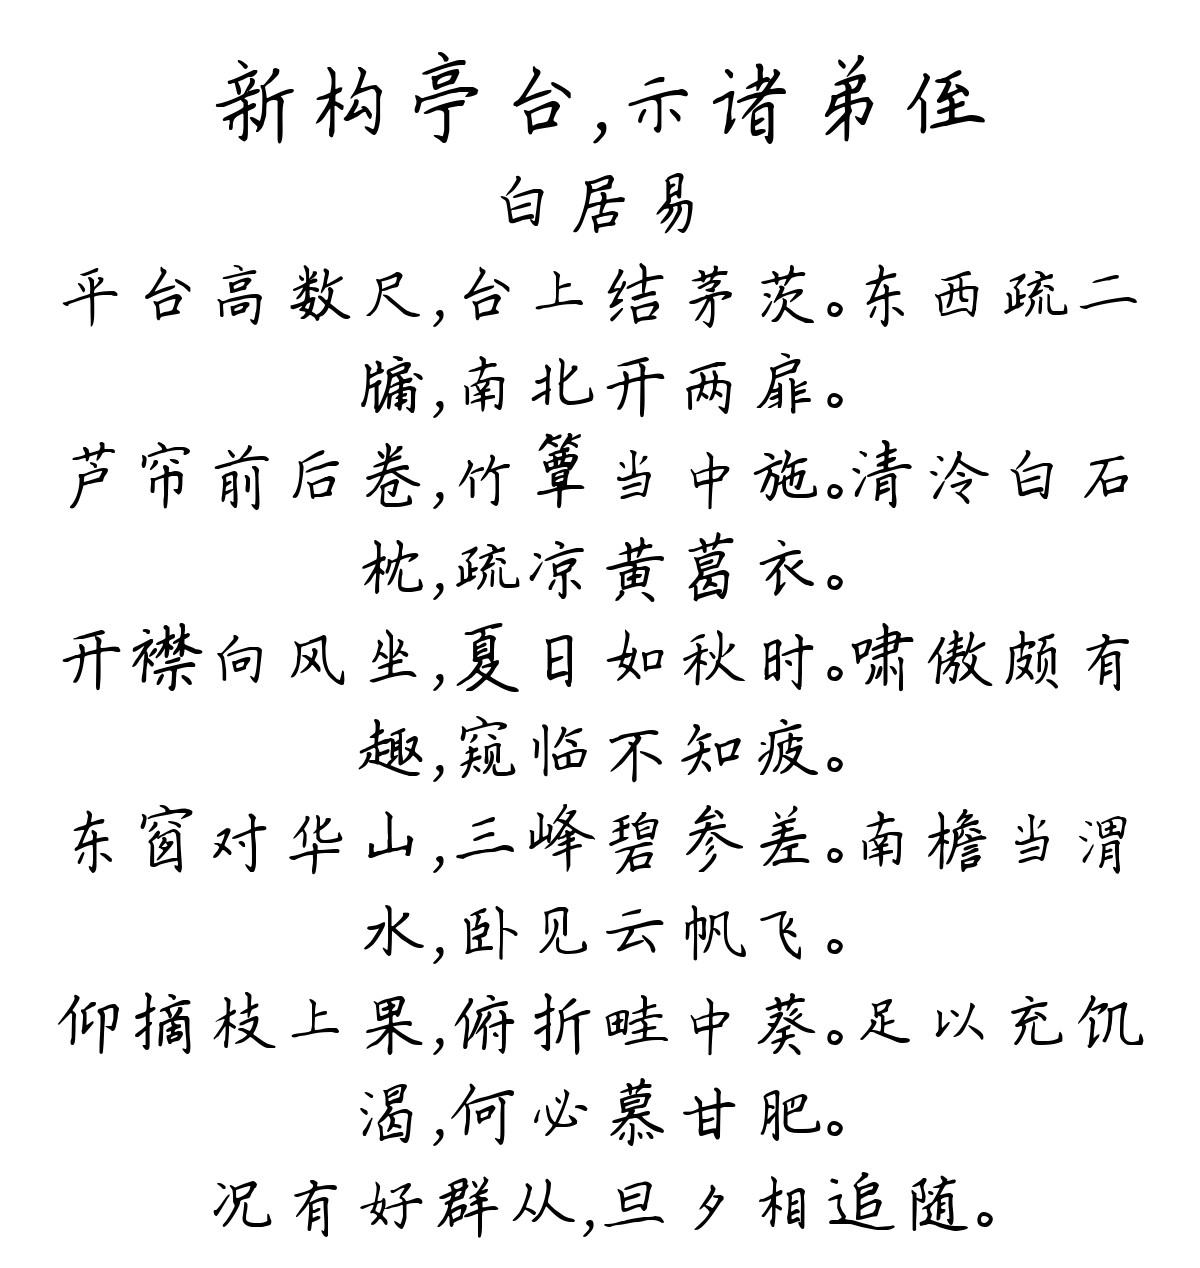 新构亭台,示诸弟侄
白居易
平台高数尺,台上结茅茨。东西疏二
牖,南北开两扉。
芦帘前后卷,竹簟当中施。清泠白石
枕,疏凉黄葛衣。
开襟向风坐,夏日如秋时。啸傲颇有
趣,窥临不知疲。
东窗对华山,三峰碧参差。南檐当渭
水,卧见云帆飞。
仰摘枝上果,俯折畦中葵。足以充饥
渴,何必慕甘肥。
况有好群从,旦夕相追随。